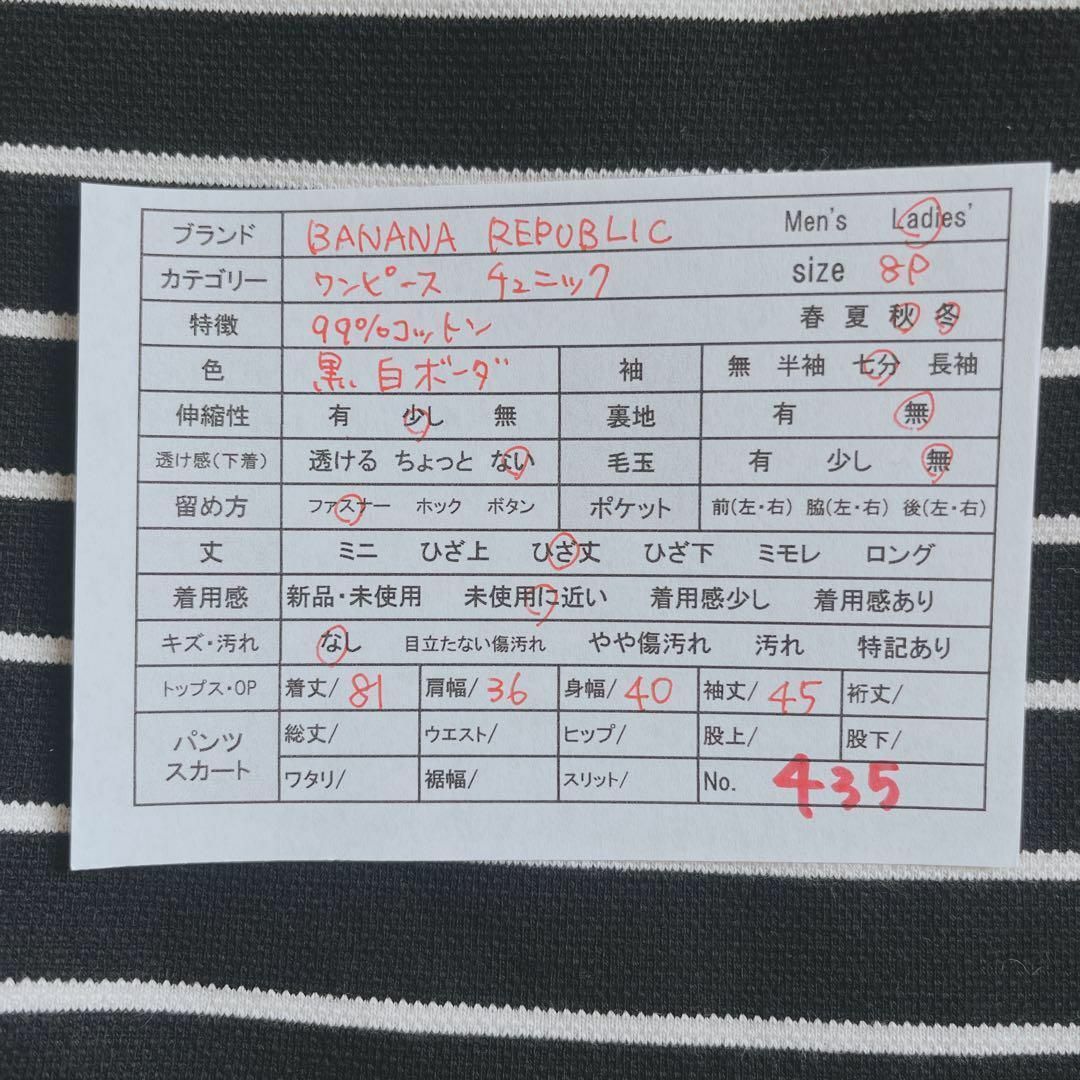 ブランド BANANA REPUBLIC Men's Ladies'
カテゴリー ワンピース チュニック size 8P
特徴 99%コットン 春 夏 秋 冬
色 黒、白ボーダ 袖 無 半袖 七分 長袖
伸縮性 有 少し 無 裏地 有 無
透け感(下着) 透ける ちょっと ない 毛玉 有 少し 無
留め方 ファスナー ホック ボタン ポケット 前(左・右) 脇(左・右) 後(左・右)
丈 ミニ ひざ上 ひざ丈 ひざ下 ミモレ ロング
着用感 新品・未使用 未使用に近い 着用感少し 着用感あり
キズ・汚れ なし 目立たない傷汚れ やや傷汚れ 汚れ 特記あり
トップス・OP 着丈/ 81 肩幅/ 36 身幅/ 40 袖丈/ 45 裄丈/
パンツ スカート 総丈/ ウエスト/ ヒップ/ 股上/ 股下/
ワタリ/ 裾幅/ スリット/ No. 435